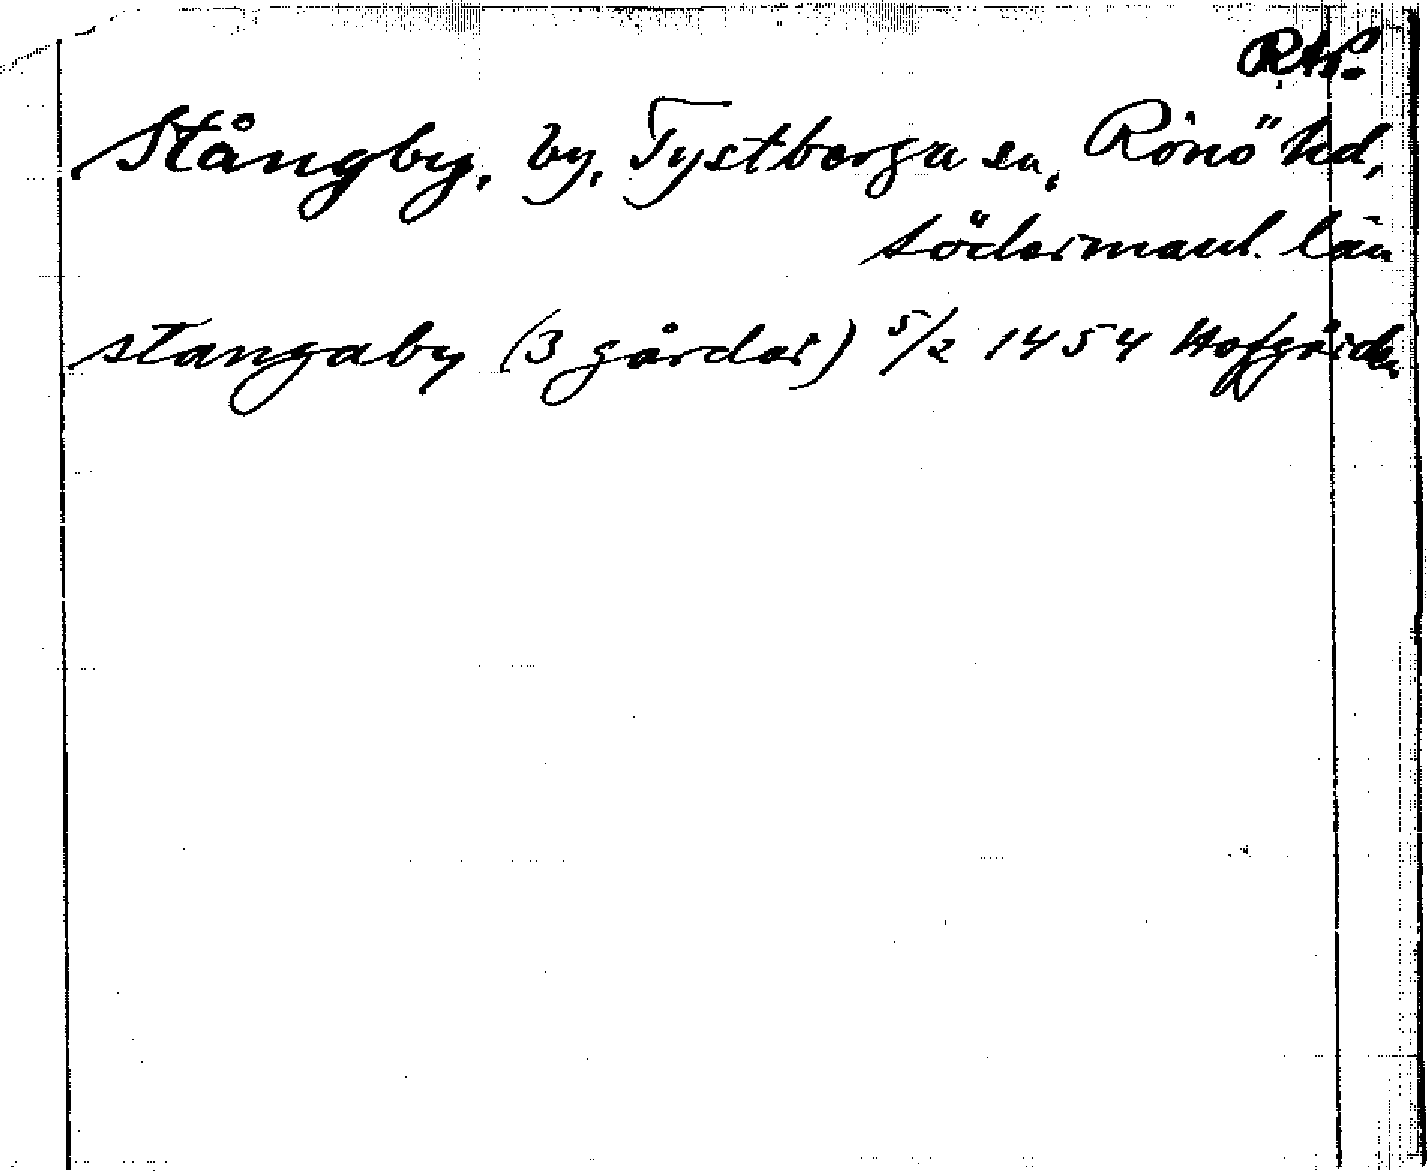 RAP.
Stångby, by, Tystberga sn, Rönö hd,
Södermanl. län
stangaby (3 gårdar) 5/2 1454 Hofgården